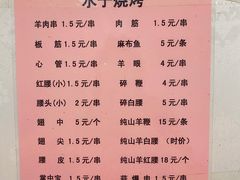 水子烧烤
羊肉串 1.5元/串 肉筋 1.5元/串
板筋 1.5元/串 麻布鱼 5元/条
心管 1.5元/串 羊眼 4元/串
红腰(小) 2元/串 碎鞭 4元/串
腰头(小) 2元/串 碎白腰 5元/串
翅中 5元/个 纯山羊鞭 15元/条
翅尖 1.5元/串 纯山羊白腰 (时价)
腰皮 1.5元/串 纯山羊红腰 18元/个
掌中宝 1.5元/串